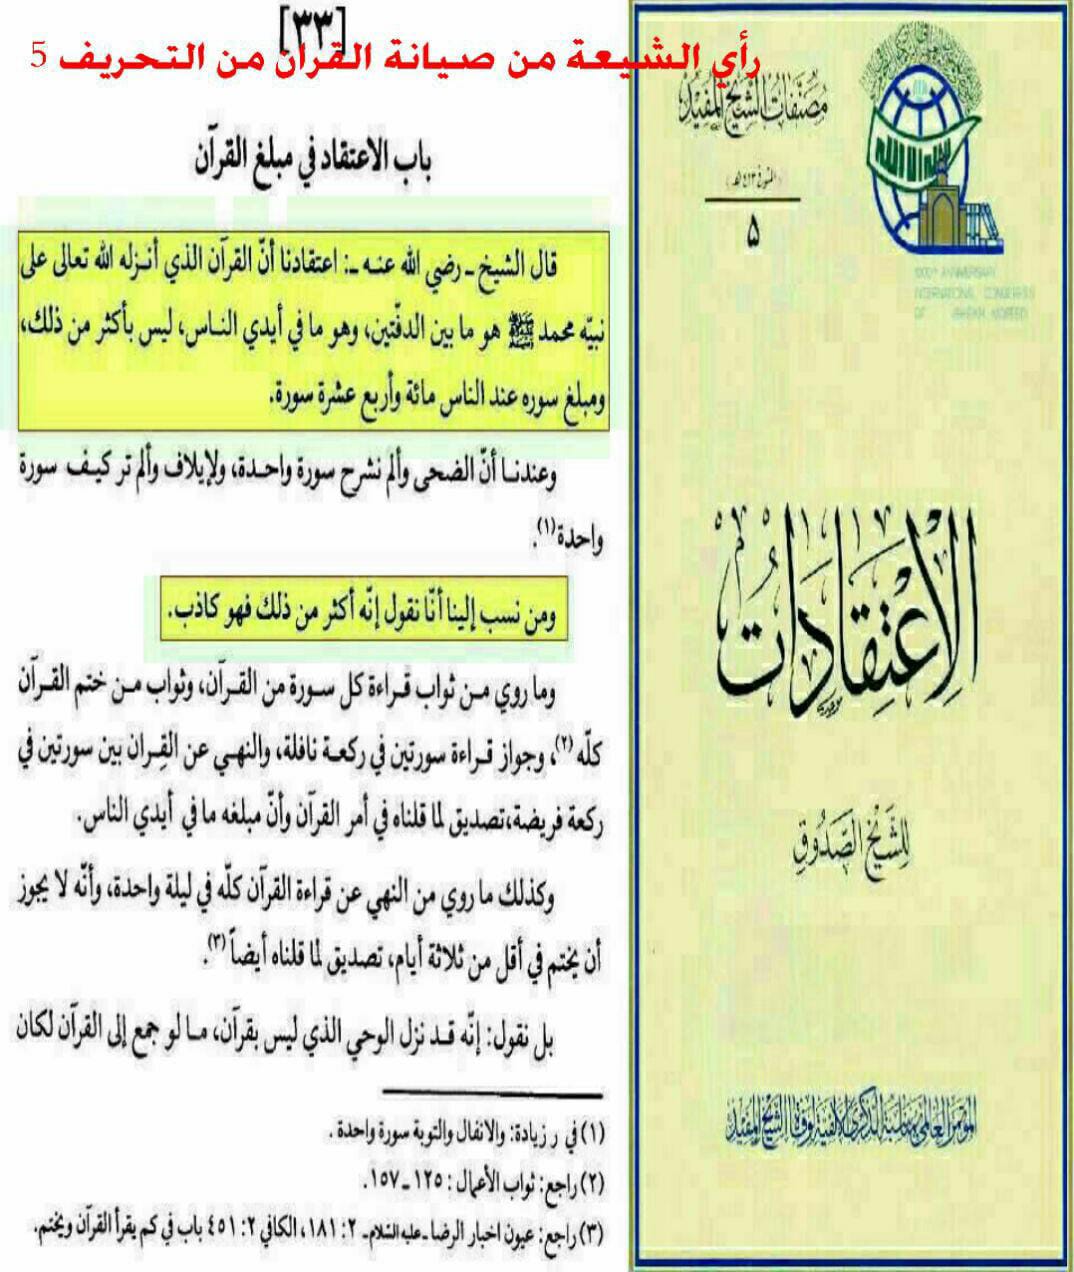 [٣٣]
رأي الشيعة من صيانة القران من التحريف 5
باب الاعتقاد في مبلغ القرآن
قال الشيخ ـ رضي الله عنه ـ: اعتقادنا أنّ القرآن الذي أنزله الله تعالى على
نبيّه محمد ﷺ هو ما بين الدفّتين، وهو ما في أيدي الناس، ليس بأكثر من ذلك،
ومبلغ سوره عند الناس مائة وأربع عشرة سورة.
وعندنا أنّ الضحى وألم نشرح سورة واحدة، ولإيلاف وألم تر كيف سورة
واحدة(١).
ومن نسب إلينا أنّا نقول إنّه أكثر من ذلك فهو كاذب.
وما روي من ثواب قراءة كل سورة من القرآن، وثواب من ختم القرآن
كلّه (٢)، وجواز قراءة سورتين في ركعة نافلة، والنهي عن القِران بين سورتين في
ركعة فريضة،تصديق لما قلناه في أمر القرآن وأنّ مبلغه ما في أيدي الناس.
وكذلك ما روي من النهي عن قراءة القرآن كلّه في ليلة واحدة، وأنّه لا يجوز
أن يختم في أقل من ثلاثة أيام، تصديق لما قلناه أيضاً (٣).
بل نقول: إنّه قد نزل الوحي الذي ليس بقرآن، ما لو جمع إلى القرآن لكان
(١) في ر زيادة: والانفال والتوبة سورة واحدة .
(٢) راجع: ثواب الأعمال : ١٢٥ ـ ١٥٧.
(٣) راجع: عيون اخبار الرضا ـ عليه السّلام ـ ٢: ١٨١، الكافي ٢: ٤٥١ باب في كم يقرأ القرآن ويختم.
مصنفات الشيخ المفيد
(المتوفى ٤١٣ هـ)
٥
1000th ANNIVERSARY
INTERNATIONAL CONGRESS
OF SHEIKH MOFEED
الإعتقادات
للشيخ الصدوق
المؤتمر العالمي بمناسبة الذكرى الألفية لوفاة الشيخ المفيد